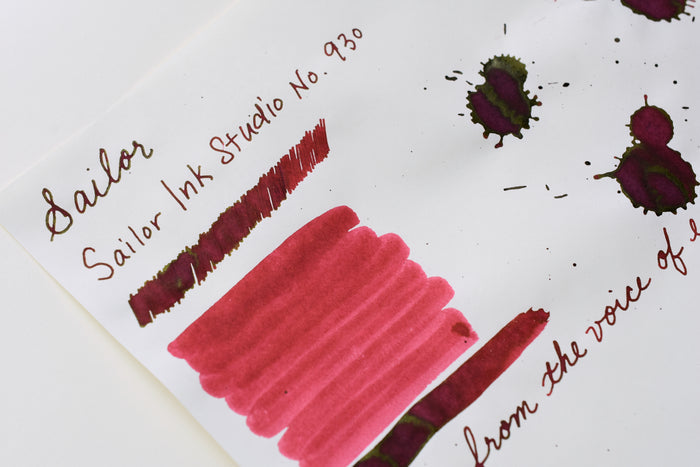 Sailor
Sailor Ink Studio No. 930
from the voice of